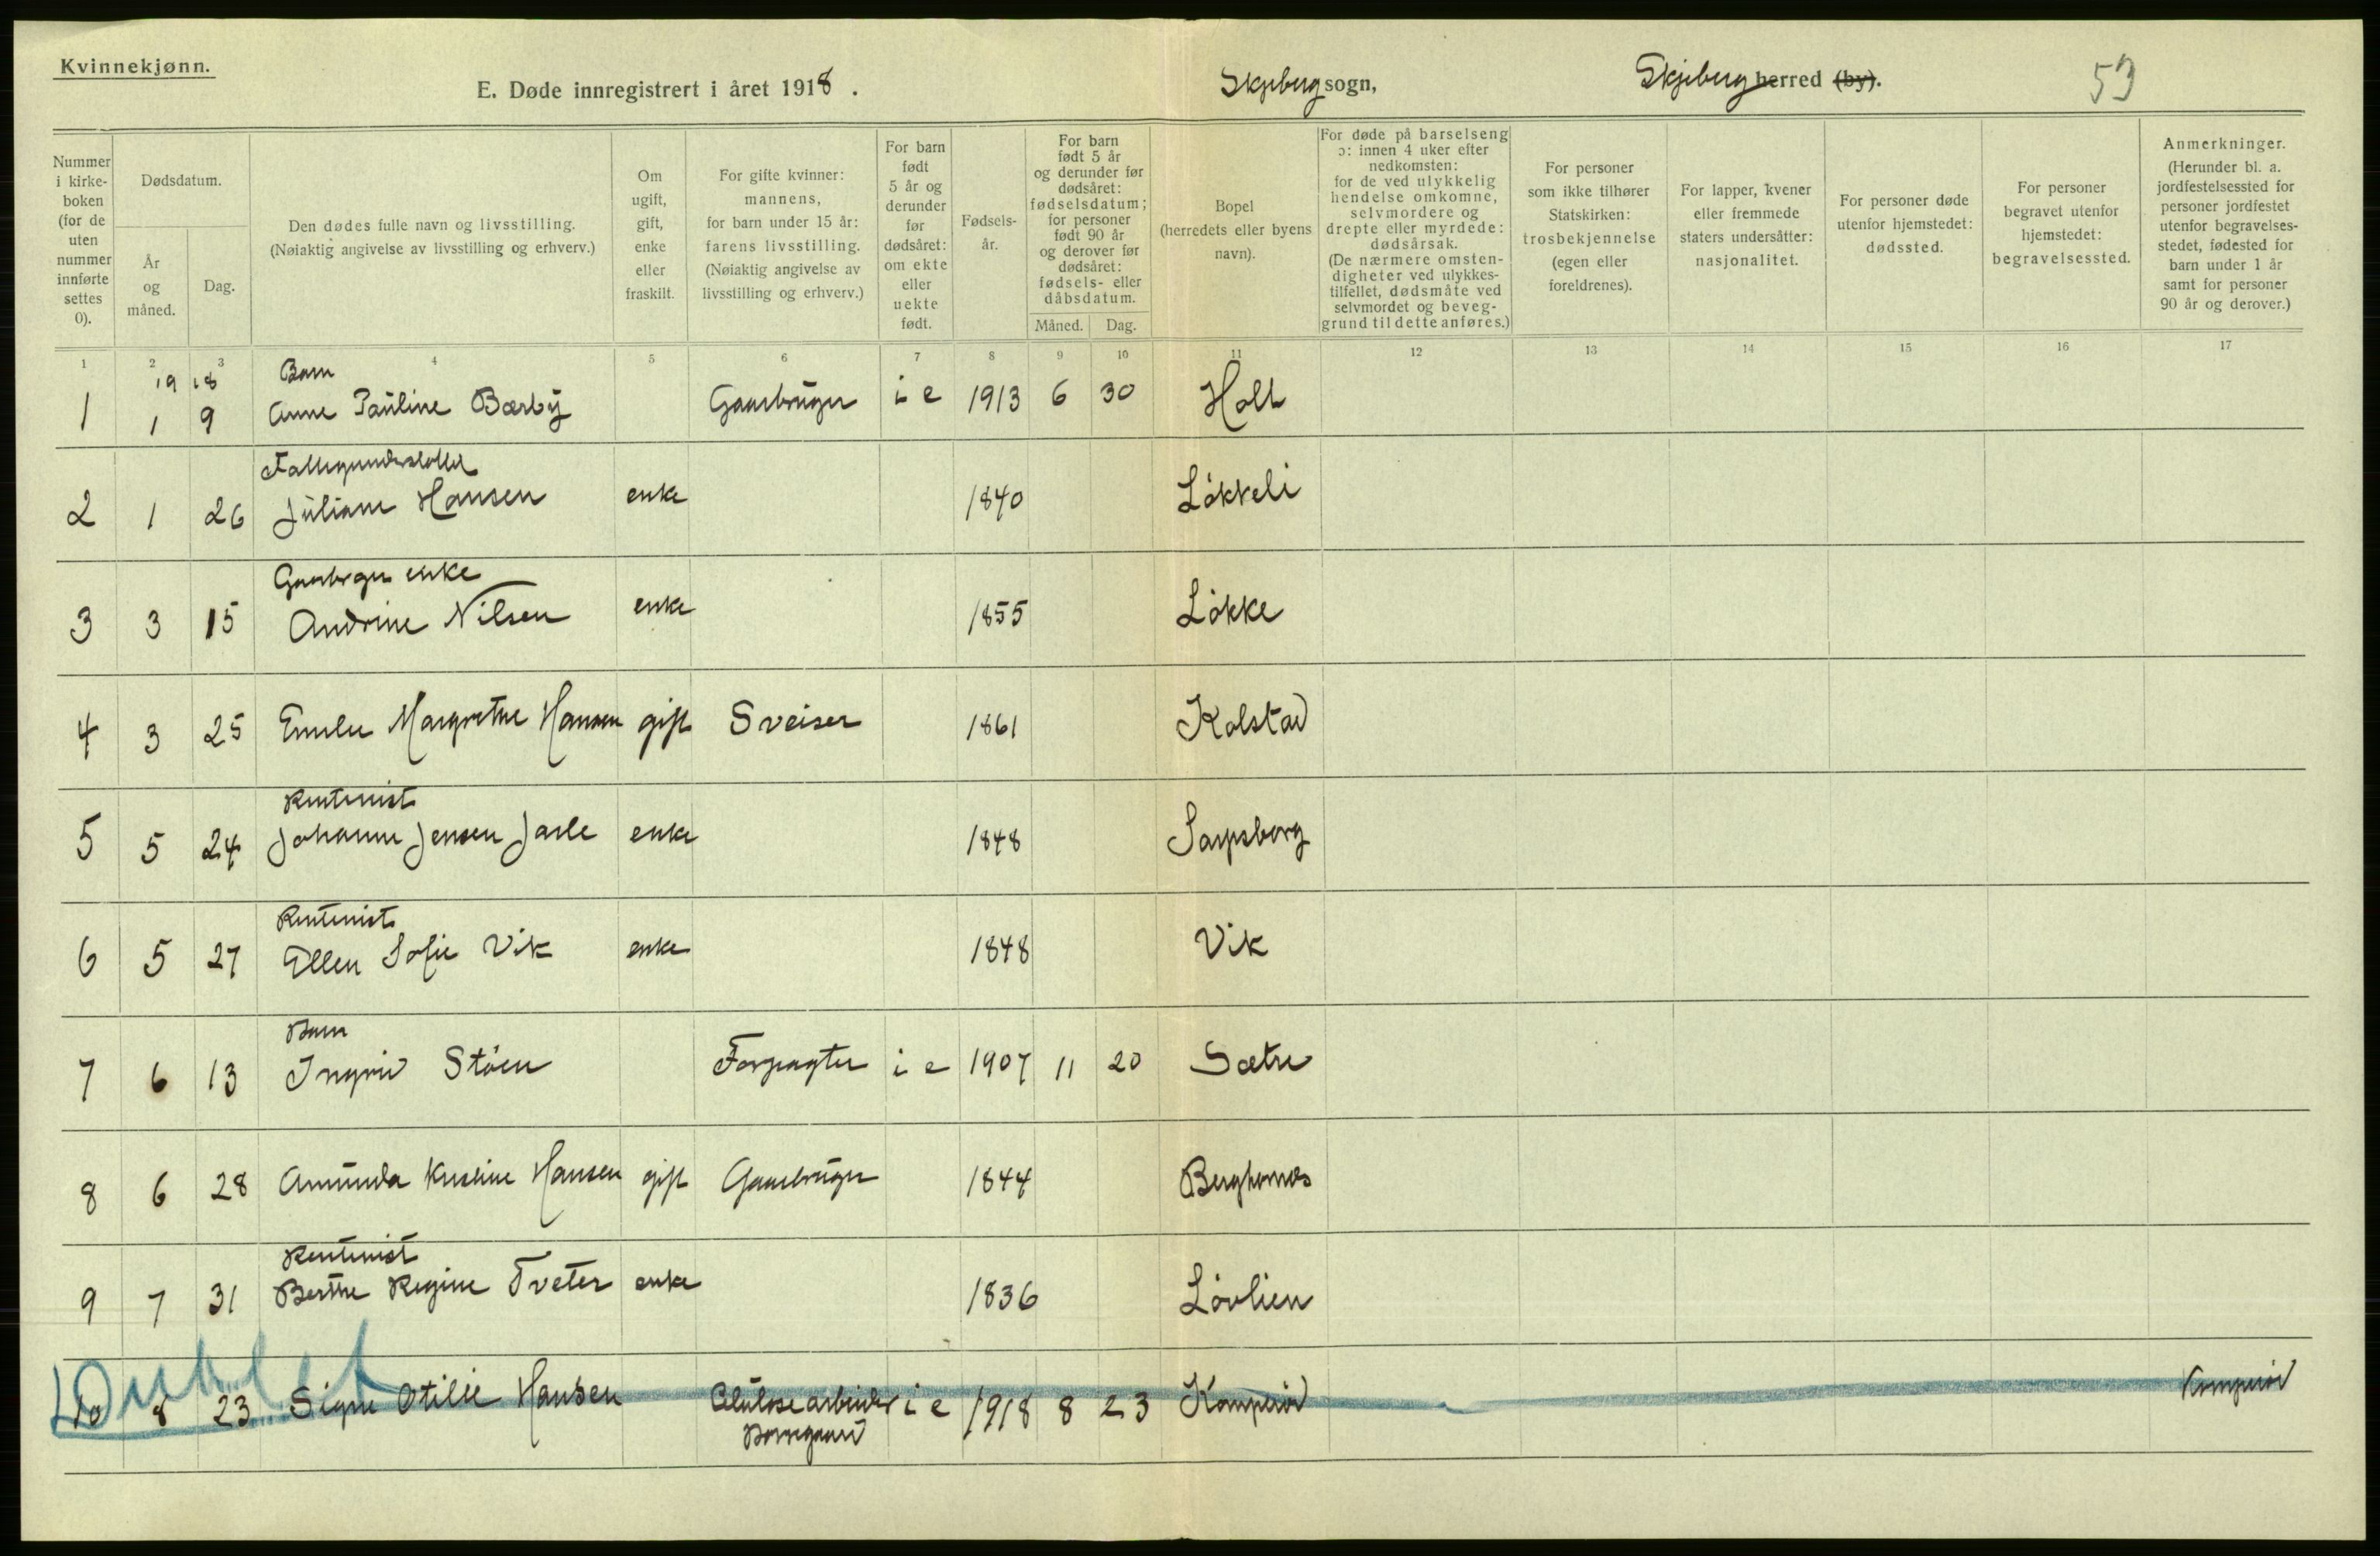 Kvinnekjønn.
E. Døde innregistrert i året 1918.
Skjeberg sogn,
Skjeberg herred (by).
53
Nummer i kirke-boken (for de uten nummer innførte settes 0).
Dødsdatum.
År og måned.
Dag.
Den dødes fulle navn og livsstilling.
(Nøiaktig angivelse av livsstilling og erhverv.)
Om ugift, gift, enke eller fraskilt.
For gifte kvinner: mannens, for barn under 15 år: farens livsstilling. (Nøiaktig angivelse av livsstilling og erhverv.)
For barn født 5 år og derunder før dødsåret: om ekte eller uekte født.
Fødsels-år.
For barn født 5 år og derunder før dødsåret: fødselsdatum; for personer født 90 år og derover før dødsåret: fødsels- eller dåbsdatum.
Måned. Dag.
Bopel (herredets eller byens navn).
For døde på barselseng ɔ: innen 4 uker efter nedkomsten: for de ved ulykkelig hendelse omkomne, selvmordere og drepte eller myrdede: dødsårsak. (De nærmere omsten-digheter ved ulykkes-tilfellet, dødsmåte ved selvmordet og beveg-grund til dette anføres.)
For personer som ikke tilhører Statskirken: trosbekjennelse (egen eller foreldrenes).
For lapper, kvener eller fremmede staters undersåtter: nasjonalitet.
For personer døde utenfor hjemstedet: dødssted.
For personer begravet utenfor hjemstedet: begravelsessted.
Anmerkninger. (Herunder bl. a. jordfestelsessted for personer jordfestet utenfor begravelses-stedet, fødested for barn under 1 år samt for personer 90 år og derover.)
1 2 3 4 5 6 7 8 9 10 11 12 13 14 15 16 17
19 18 Barn
1 1 9 Anne Pauline Bærby Gaarbruger i e 1913 6 30 Holt
2 1 26 Juliane Hansen enke 1840 Løkkeli
Gaarbruger enke
3 3 15 Andrine Nilsen enke 1855 Løkke
4 3 25 Emilie Margrethe Hansen gift Sveiser 1861 Kolstad
Rentenist
5 5 24 Johanne Jensen Jarle enke 1848 Sarpsborg
Rentenist
6 5 27 Ellen Sofie Vik enke 1848 Vik
Barn
7 6 13 Ingrid Støen Forpagter i e 1907 11 20 Sætre
8 6 28 Amunda Kristine Hansen gift Gaarbruger 1844 Berghornæs
Rentenist
9 7 31 Berthe Regine Tveter enke 1836 Løvlien
10 8 23 Signe Otilie Hansen Celulosearbeider i e 1918 8 23 Kamperød Kamperød
Borregaard